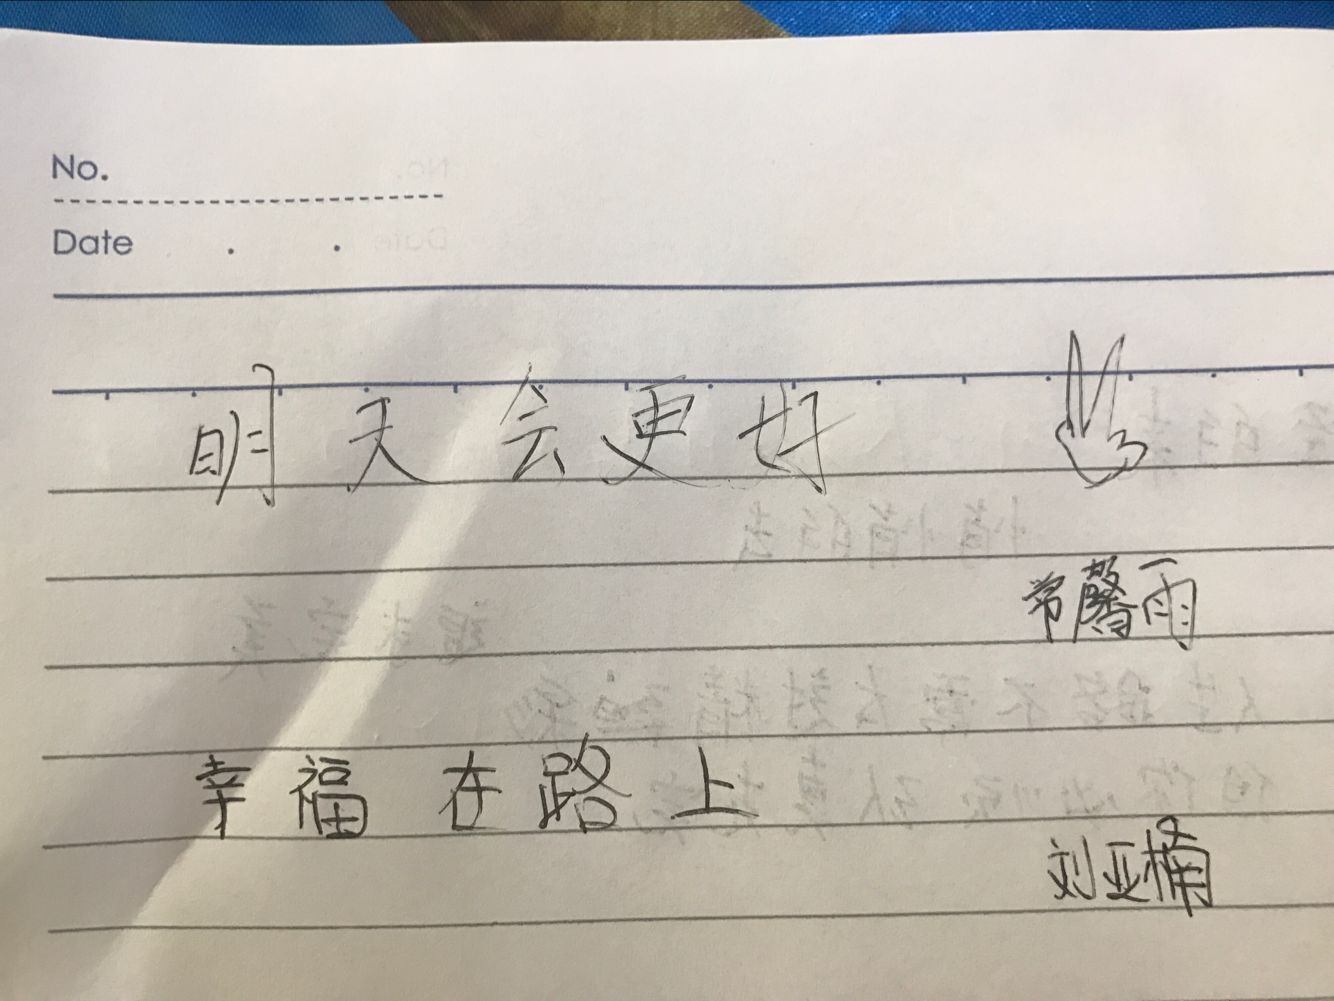 No.
Date . .
明天会更好
常馨雨
幸福在路上
刘亚楠